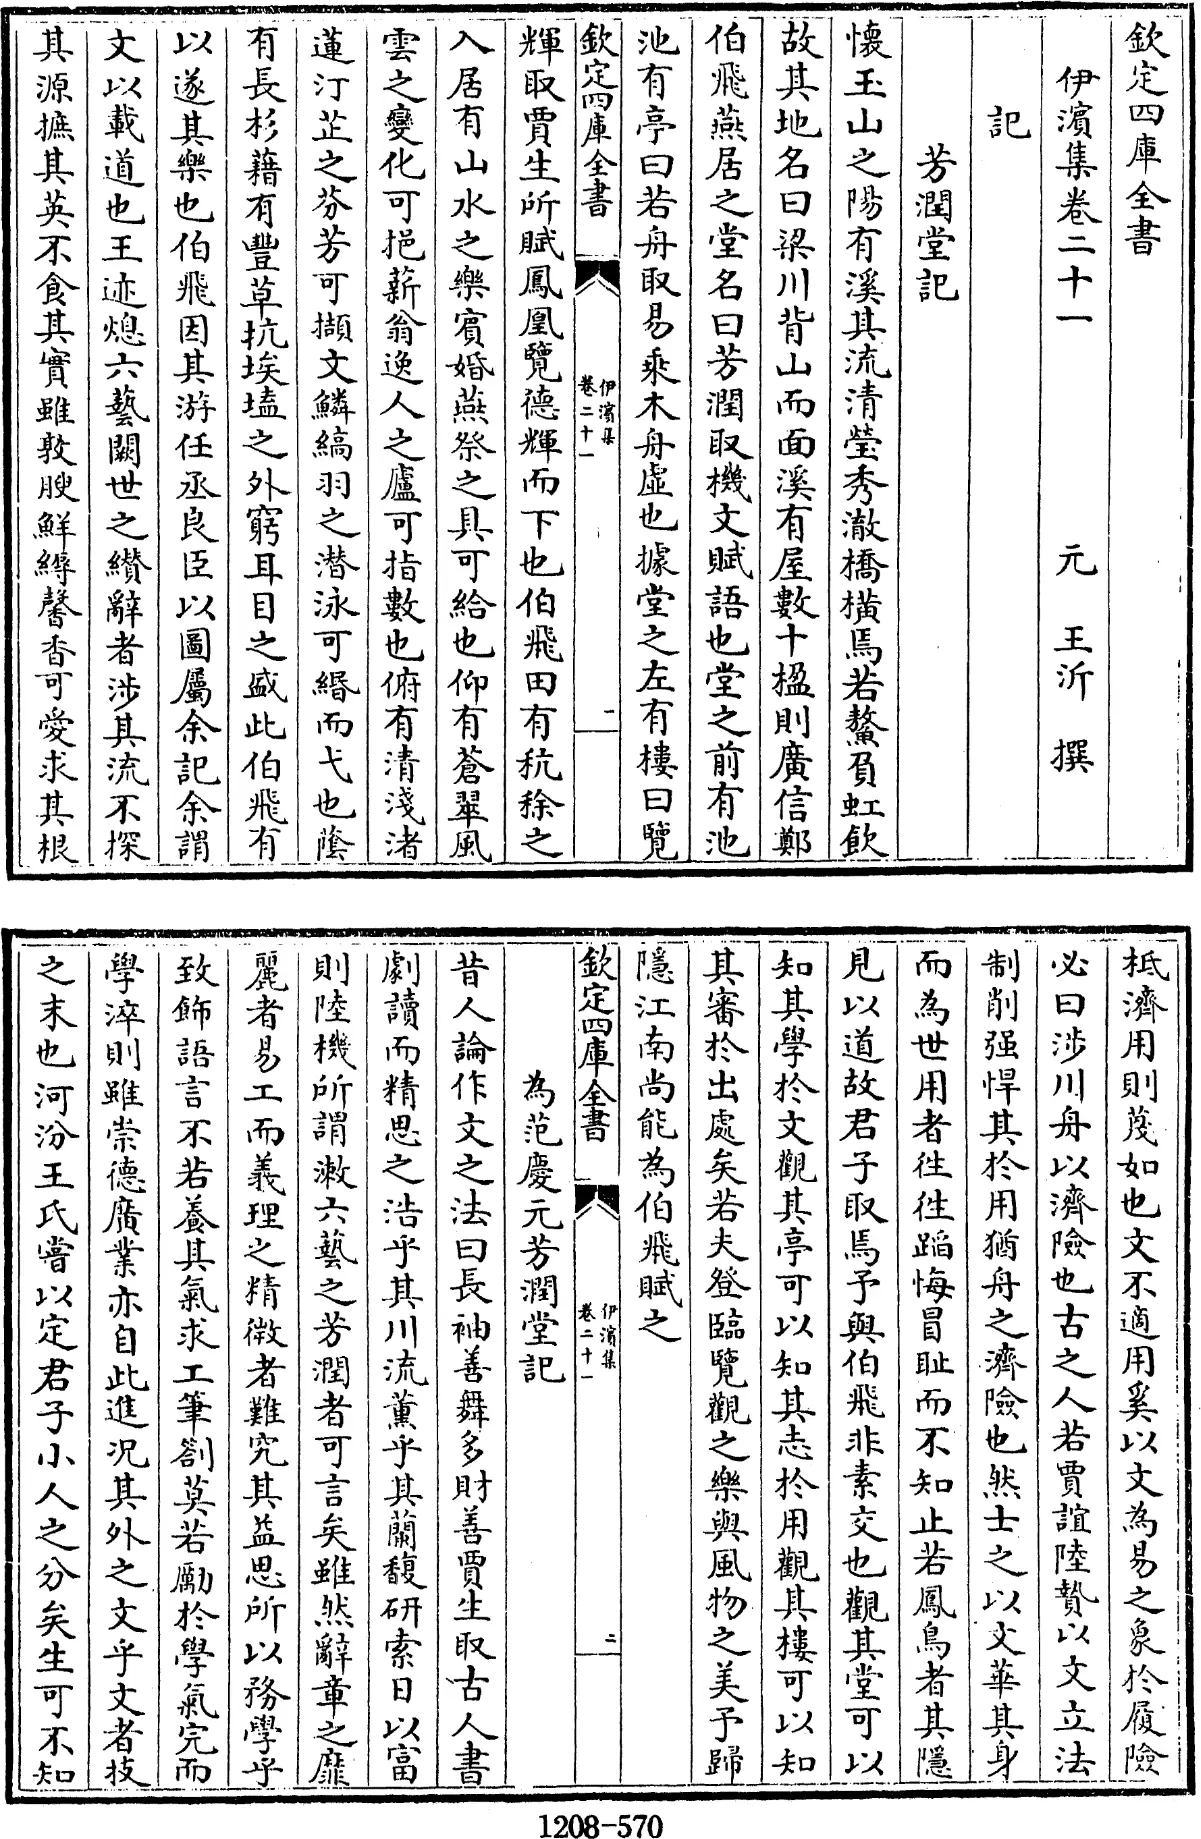 欽定四庫全書
伊濱集卷二十一　元　王沂　撰
記
芳潤堂記
懷玉山之陽有溪其流清瑩秀澈橋橫焉若鰲負虹飲
故其地名曰梁川背山而面溪有屋數十楹則廣信鄭
伯飛燕居之堂名曰芳潤取機文賦語也堂之前有池
池有亭曰若舟取易乘木舟虛也據堂之左有樓曰覽
欽定四庫全書　伊濱集卷二十一　一
輝取賈生所賦鳳凰覽德輝而下也伯飛田有秔稌之
入居有山水之樂賓婚燕祭之具可給也仰有蒼翠風
雲之變化可挹薪翁逸人之廬可指數也俯有清淺渚
蓮汀芷之芬芳可擷文鱗縞羽之潛泳可緡而弋也蔭
有長杉藉有豐草抗埃壒之外窮耳目之盛此伯飛有
以遂其樂也伯飛因其游任丞良臣以圖屬余記余謂
文以載道也王迹熄六藝闕世之纘辭者涉其流不探
其源摭其英不食其實雖敦腴鮮縟馨香可愛求其根
柢濟用則蔑如也文不適用奚以文為易之象於履險
必曰涉川舟以濟險也古之人若賈誼陸贄以文立法
制削强悍其於用猶舟之濟險也然士之以文華其身
而為世用者往往蹈悔冒耻而不知止若鳳鳥者其隱
見以道故君子取焉予與伯飛非素交也觀其堂可以
知其學於文觀其亭可以知其志於用觀其樓可以知
其審於出處矣若夫登臨覽觀之樂與風物之美予歸
隱江南尚能為伯飛賦之
欽定四庫全書　伊濱集卷二十一　二
為范慶元芳潤堂記
昔人論作文之法曰長袖善舞多財善賈生取古人書
劇讀而精思之浩乎其川流薰乎其蘭馥研索日以富
則陸機所謂漱六藝之芳潤者可言矣雖然辭章之靡
麗者易工而義理之精微者難究其益思所以務學乎
致飾語言不若養其氣求工筆劄莫若勵於學氣完而
學淬則雖崇德廣業亦自此進況其外之文乎文者技
之末也河汾王氏嘗以定君子小人之分矣生可不知
1208-570